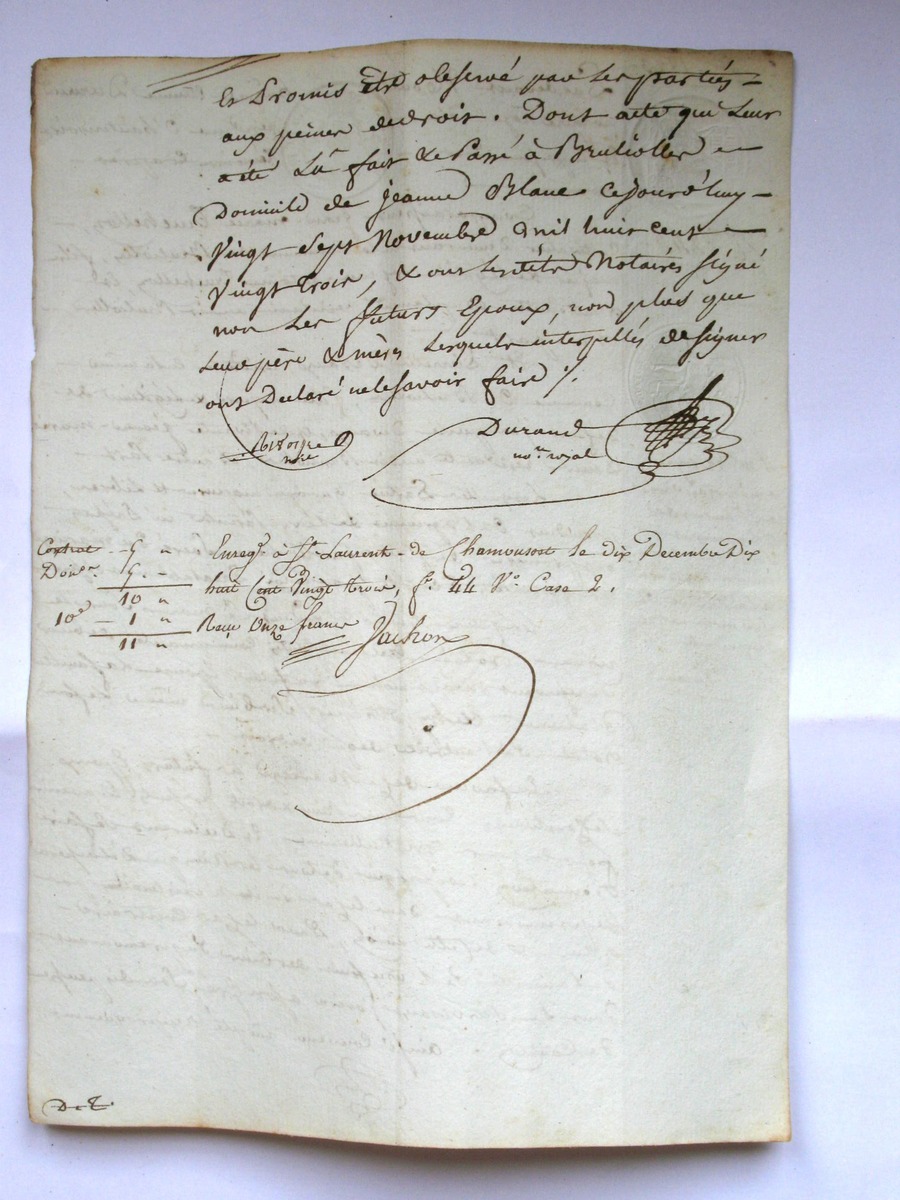 Et Promis être observé par les parties
aux peines de droit. Dont acte qui leur
a été Lu fait & Passé à Brullioles
Domicile de jeanne Blanc cejourd'huy
Vingt Sept Novembre mil huit cent
Vingt trois, & ont les dits Notaires Signé
non Les futurs Epoux, non plus que
leurs père & mères lesquels interpellés de signer
ont Declaré ne le savoir faire ./.
Durand
nore royal
nre
Contrat - 5 "  Enregé à St Laurent - de Chamousset le dix Decembre Dix
Donon 5. -  huit Cent Vingt trois, fo 44 Vo Case 2.
10 "
10e - 1 "  Reçu Onze francs Jachon
11 "